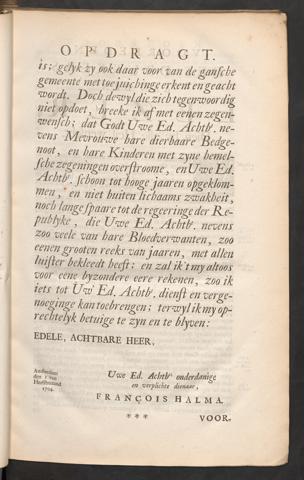 OPDRAGT.
is; gelyk zy ook daar voor van de gansche
gemeente met toejuichinge erkent en geacht
wordt. Doch dewyl die zich tegenwoordig
niet opdoet, breeke ik af met eenen zegen-
wensch; dat Godt Uwe Ed. Achtbr. ne-
vens Mevrouwe hare dierbaare Bedge-
noot, en hare Kinderen met zyne hemel-
sche zegeningen overstroome, en Uwe Ed.
Achtbr. schoon tot hooge jaaren opgeklom-
men, en niet buiten lichaams zwakheit,
noch lange spaare tot de regeeringe der Re-
publyke, die Uwe Ed. Achtbr. nevens
zoo veele van hare Bloedverwanten, zoo
eenen grooten reeks van jaaren, met allen
luister bekleedt heeft; en zal ik 't my altoos
voor eene byzondere eere rekenen, zoo ik
iets tot Uwe Ed. Achtbr. dienst en verge-
noeginge kan toebrengen; terwyl ik my op-
rechtelyk betuige te zyn en te blyven:
EDELE, ACHTBARE HEER,
Uwe Ed. Achtbrs onderdanige
en verplichte dienaar,
Amsterdam
den 1. van
Herfstmaand
1704.
FRANÇOIS HALMA.
***
VOOR.